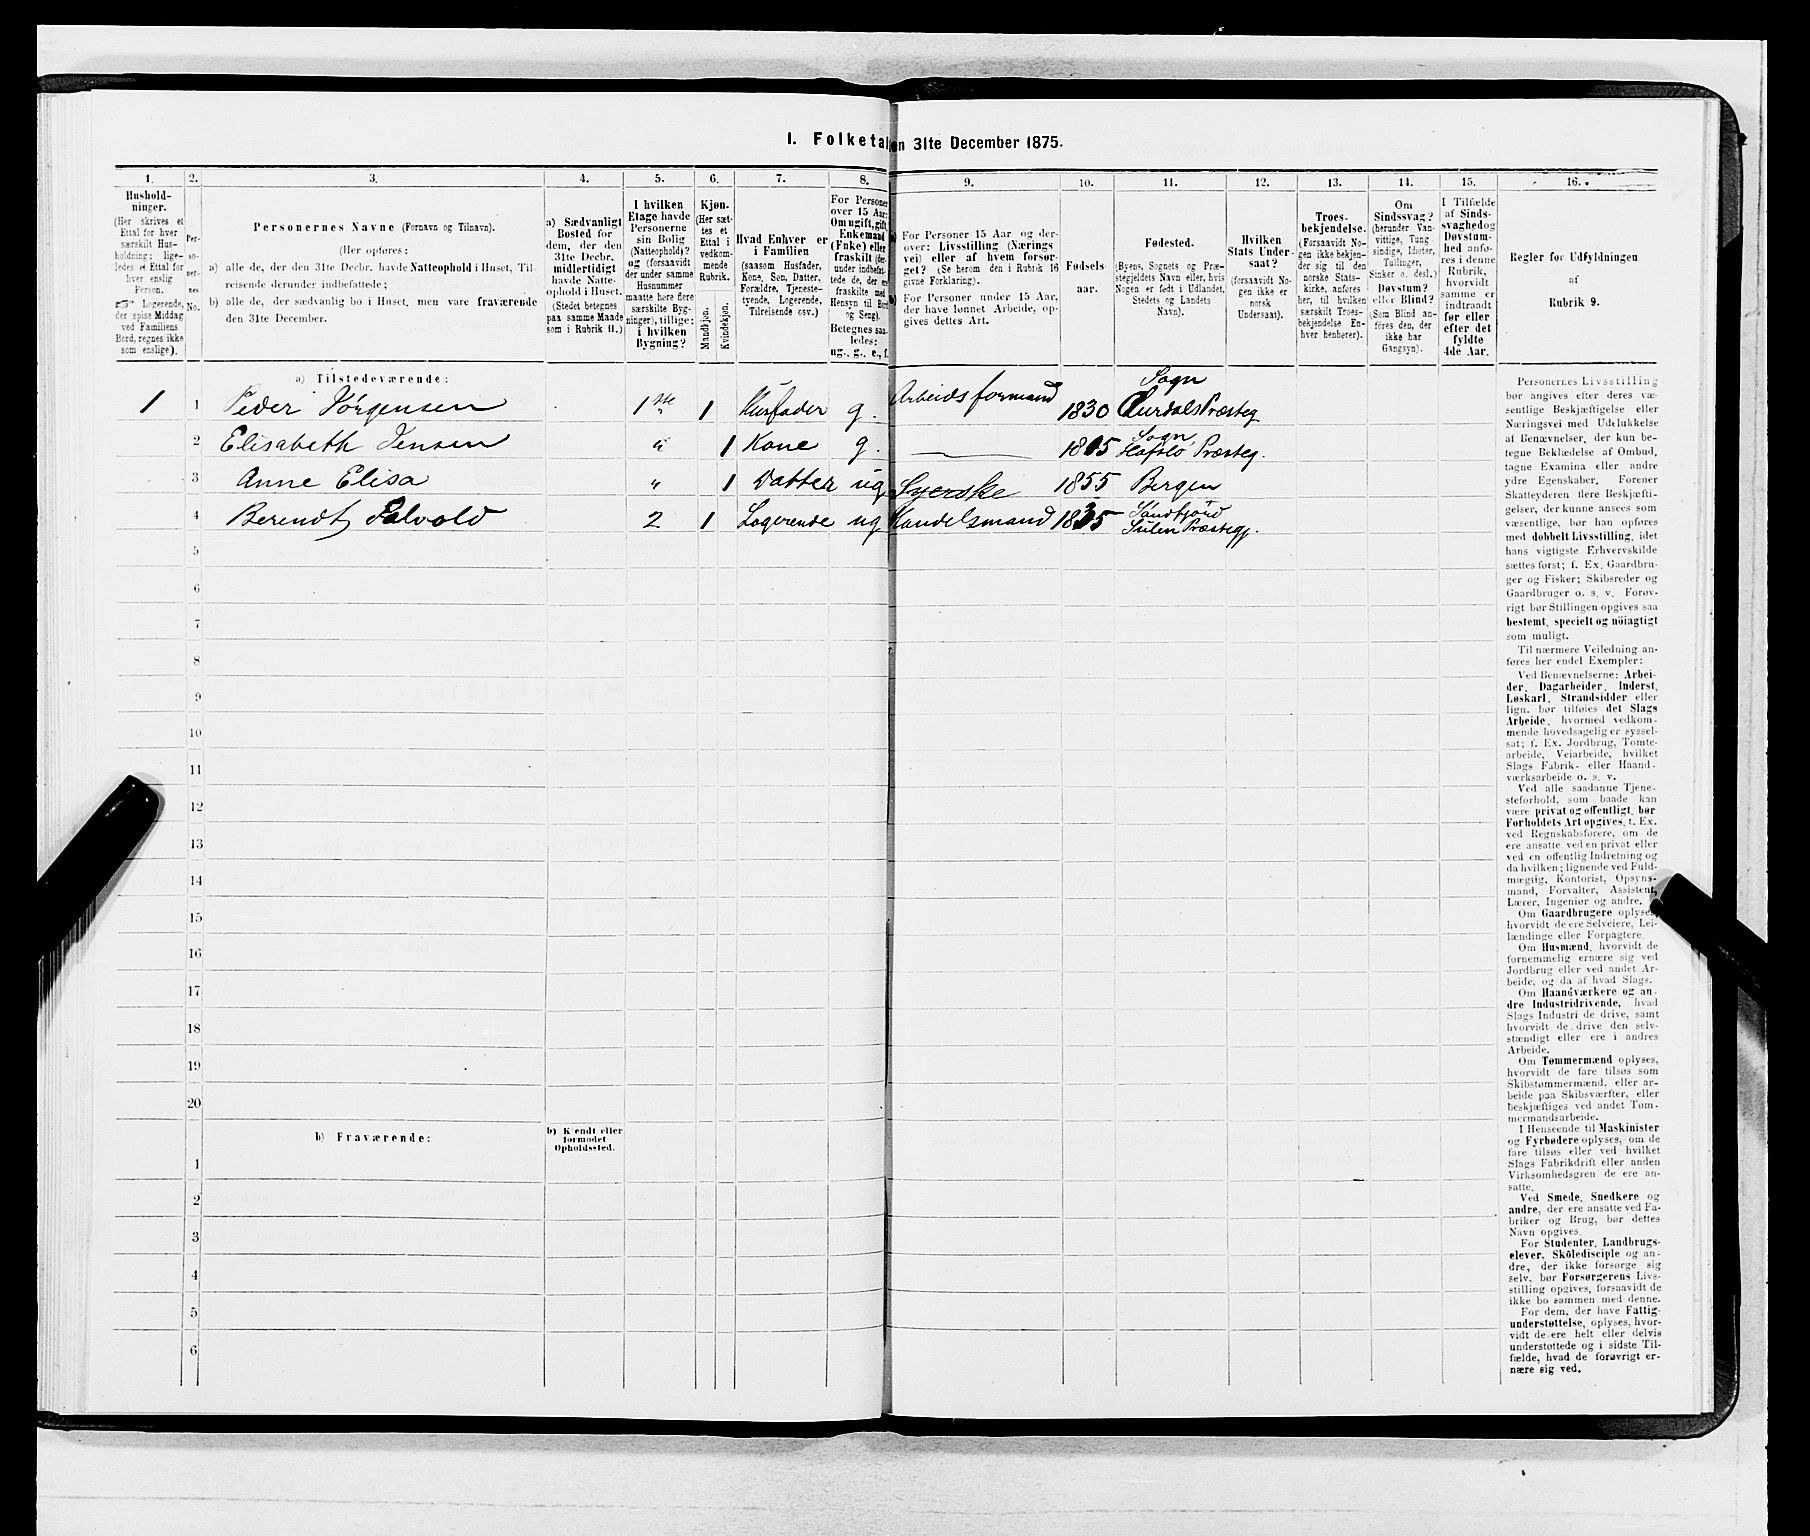 I. Folketal en 31te December 1875.
1. 2. 3. 4. 5. 6. 7. 8. 9. 10. 11. 12. 13. 14. 15. 16.
Hushold-
ninger.
(Her skrives et
Ettal for hver
særskilt Hus-
holdning; lige-
ledes et Ettal for
hver enslig
Person.
☞ Logerende,
der spise Middag
ved Familiens
Bord, regnes ikke
som enslige).
Per-
so-
ner-
nes
No.
Personernes Navne (Fornavn og Tilnavn).
(Her opføres:
a) alle de, der den 31te Decbr. havde Natteophold i Huset, Til-
reisende derunder indbefattede;
b) alle de, der sædvanlig bo i Huset, men vare fraværende
den 31te December.
a) Sædvanligt
Bosted for
dem, der den
31te Decbr.
midlertidigt
havde Natte-
ophold i Huset.
(Stedet betegnes
paa samme Maade
som i Rubrik 11.)
I hvilken
Etage havde
Personerne
sin Bolig
(Natteophold)?
og (forsaavidt
der under samme
Husnummer
maatte høre flere
særskilte Byg-
ninger), tillige:
i hvilken
Bygning?
Kjøn.
(Her sæt-
tes et
Ettal i
vedkom-
mende
Rubrik.
Mandkjøn.
Kvindekjøn.
Hvad Enhver er
i Familien
(saasom Husfader,
Kone, Søn, Datter,
Forældre, Tjeneste-
tyende, Logerende,
Tilreisende osv.)
For Personer
over 15 Aar:
Om ugift, gift,
Enkemand
(Enke) eller
fraskilt (der-
under indbefat-
tede de, der ere
fraskilte med
Hensyn til Bord
og Seng).
Betegnes saa-
ledes:
ug., g., e., f.
For Personer 15 Aar og der-
over: Livsstilling (Nærings
vei) eller af hvem forsør-
get? (Se herom den i Rubrik 16
givne Forklaring).
For Personer under 15 Aar,
der have lønnet Arbeide, op-
gives dettes Art.
Fødsels-
aar.
Fødested.
(Byens, Sognets og Præ-
stegjeldets Navn eller, hvis
Nogen er født i Udlandet,
Stedets og Landets
Navn).
Hvilken
Stats Under-
saat?
(forsaavidt No-
gen ikke er
norsk
Undersaat).
Troes-
bekjendelse.
(Forsaavidt No-
gen ikke bekjen-
der sig til den
norske Stats-
kirke, anføres
her, til hvilken
særskilt Troes-
bekjendelse En-
hver henhører).
Om
Sindssvag?
(herunder Van-
vittige, Tung-
sindige, Idioter,
Tullinger,
Sinker o. desl.)
Døvstum?
eller Blind?
(Som Blind an-
føres den, der
ikke har
Gangsyn).
I Tilfælde
af Sinds-
svaghed og
Døvstum-
hed anfø-
res i denne
Rubrik,
hvorvidt
samme er
indtraadt
før eller
efter det
fyldte
4de Aar.
Regler for Udfyldningen
af
Rubrik 9.
a) Tilstedeværende:
1 1 Peder Jörgensen 1ste 1 Husfader g. Arbeidsformand 1830 Sogn
Aurdals Præsteg
2 Elisabeth Jensen " 1 Kone g. 1815 Sogn
Hafslo Præsteg.
3 Anne Elisa " 1 Datter ug Syerske 1855 Bergen
4 Berendt Salvold 2 1 Logerende ug Handelsmand 1835 Söndfjörd
Sulen Præstegj.
5
6
7
8
9
10
11
12
13
14
15
16
17
18
19
20
b) Fraværende:
b) Kjendt eller
formodet
Opholdssted.
1
2
3
4
5
6
Personernes Livsstilling
bør angives efter deres væ-
sentlige Beskjæftigelse eller
Næringsvei med Udelukkelse
af Benævnelser, der kun be-
tegne Beklædelse af Ombud,
tagne Examina eller andre
ydre Egenskaber. Forener
Skatteyderen flere Beskjæfti-
gelser, der kunne ansees som
væsentlige, bør han opføres
med dobbelt Livsstilling, idet
hans vigtigste Erhvervskilde
sættes først; f. Ex. Gaardbru-
ger og Fisker; Skibsreder og
Gaardbruger o. s. v. Forøv-
rigt bør Stillingen opgives saa
bestemt, specielt og nöiagtigt
som muligt.
Til nærmere Veiledning an-
føres her endel Exempler:
Ved Benævnelserne: Arbei-
der, Dagarbeider, Inderst,
Løskarl, Strandsidder eller
lign. bør tilføies det Slags
Arbeide, hvormed vedkom-
mende hovedsagelig er syssel-
sat; f. Ex. Jordbrug, Tomte-
arbeide, Veiarbeide, hvilket
Slags Fabrik- eller Haand-
værksarbeide o. s. v.
Ved alle saadanne Tjene-
steforhold, som baade kan
være privat og offentligt, bør
Forholdets Art opgives, f. Ex.
ved Regnskabsførere, om de
ere ansatte ved en privat eller
ved en offentlig Indretning og
da hvilken; lignende ved Fuld-
mægtig, Kontorist, Opsyns-
mand, Forvalter, Assistent,
Lærer, Ingeniør og andre.
Om Gaardbrugere oplyses,
hvorvidt de ere Selveiere, Lei-
lændinge eller Forpagtere.
Om Husmænd, hvorvidt de
fornemmelig ernære sig ved
Jordbrug eller ved andet Ar-
beide, og da af hvad Slags.
Om Haandværkere og an-
dre Industridrivende, hvad
Slags Industri de drive, samt
hvorvidt de drive den selv-
stændigt eller ere i andres
Arbeide.
Om Tømmermænd oplyses,
hvorvidt de fare tilsøs som
Skibstømmermænd, eller ar-
beide paa Skibsværfter, eller
beskjæftiges ved andet Tøm-
mermandsarbeide.
I Henseende til Maskinister
og Fyrbødere oplyses, om de
fare tilsøs eller ved hvilket
Slags Fabrikdrift eller anden
Virksomhedsgren de ere an-
satte.
Ved Smede, Snedkere og
andre, der ere ansatte ved Fa-
briker og Brug, bør dettes
Navn opgives.
For Studenter, Landbrugs-
elever, Skoledisciple og an-
dre, der ikke forsørge sig
selv, bør Forsørgerens Livs-
stilling opgives, forsaavidt de
ikke bo sammen med denne.
For dem, der have Fattig-
understøttelse, oplyses, hvor-
vidt de ere helt eller delvis
understøttede og i sidste Til-
fælde, hvad de forøvrigt er-
nære sig ved.